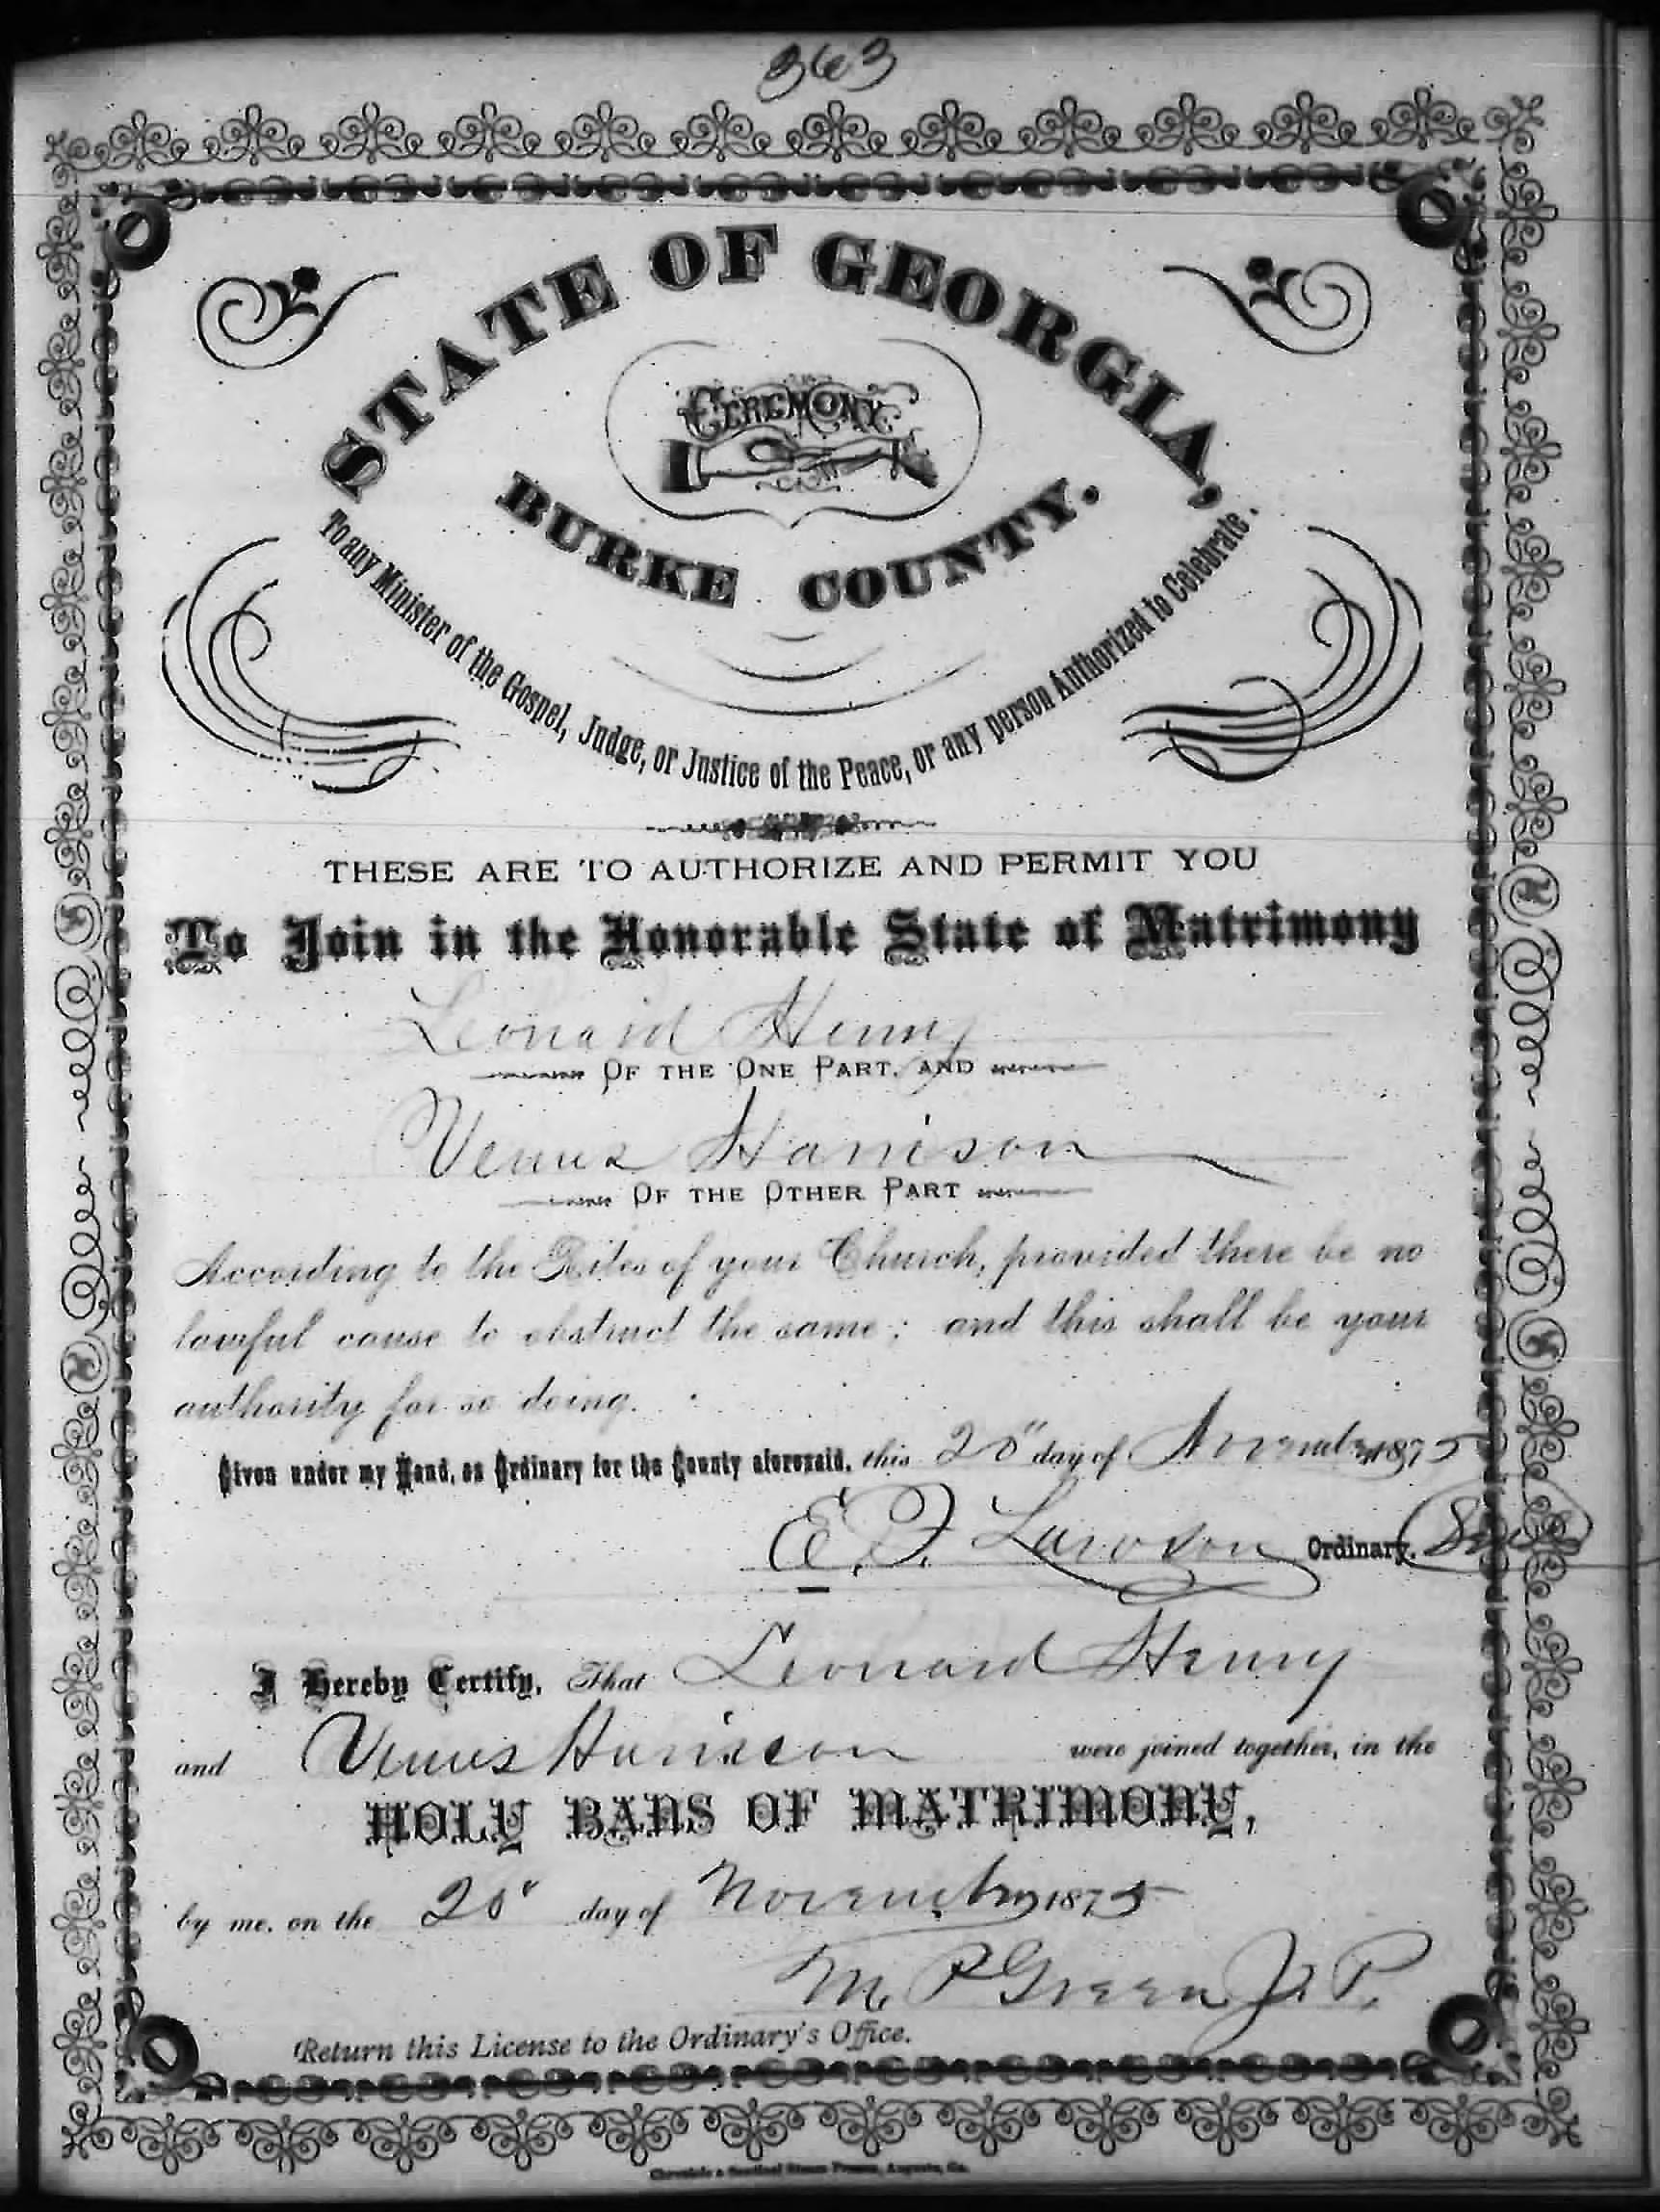 363
STATE OF GEORGIA,
CEREMONY
BURKE COUNTY.
To any Minister of the Gospel, Judge, or Justice of the Peace, or any person Authorized to Celebrate.
THESE ARE TO AUTHORIZE AND PERMIT YOU
To Join in the Honorable State of Matrimony
Leonard Henry
OF THE ONE PART, AND
Venus Harrison
OF THE OTHER PART
According to the Rites of your Church, provided there be no
lawful cause to obstruct the same; and this shall be your
authority for so doing.
Given under my Hand, as Ordinary for the County aforesaid, this 20" day of November 1875
E. F. Lawson Ordinary.
I Hereby Certify, That Leonard Henry
and Venus Harrison were joined together, in the
HOLY BANS OF MATRIMONY,
by me, on the 20" day of November 1875
M. P Green J. P.
Return this License to the Ordinary's Office.
Chronicle & Sentinel Steam Presses, Augusta, Ga.